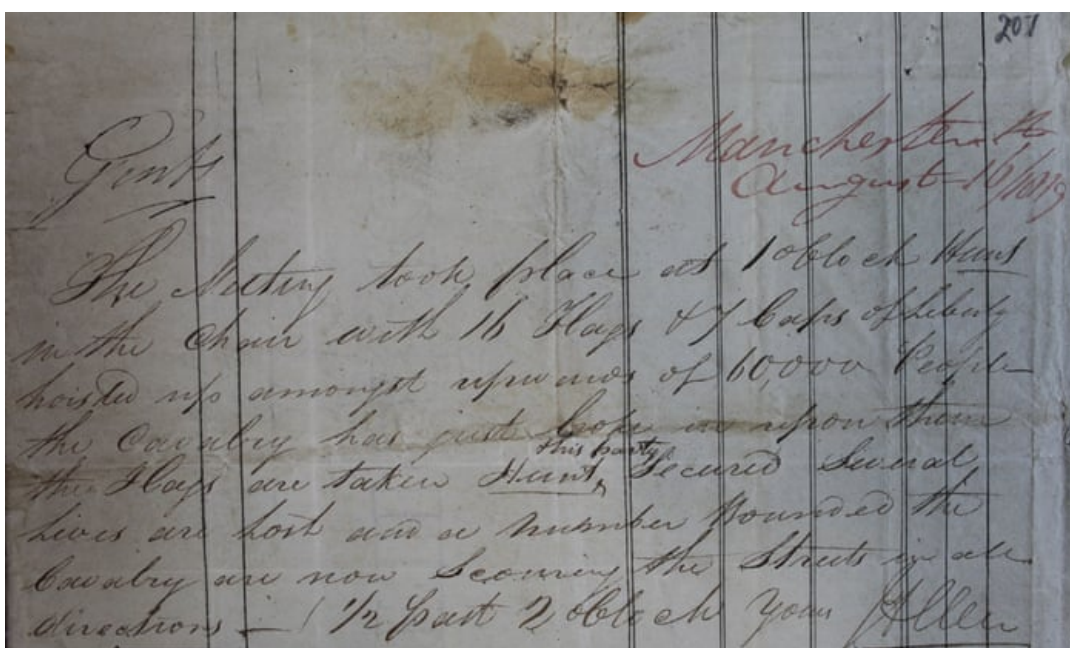 201
Manchester
August 16/1819
Gents
The Meeting took place at 1 oClock Hunt
in the Chair with 16 Flags & 7 Caps of Liberty
hoisted up amongst upwards of 60,000 People
the Cavalry has just in upon them
this party
the Flags are taken Hunt, Secured Several
Lives are Lost and a number Wounded the
Cavalry are now Scouring the Streets in all
directions — ½ past 2 oClock Yours Allen